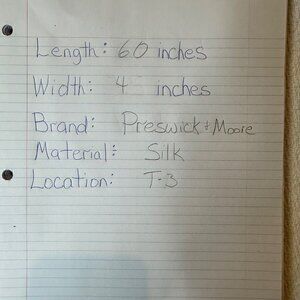 Length: 60 inches
Width: 4 inches
Brand: Preswick + Moore
Material: Silk
Location: T-3